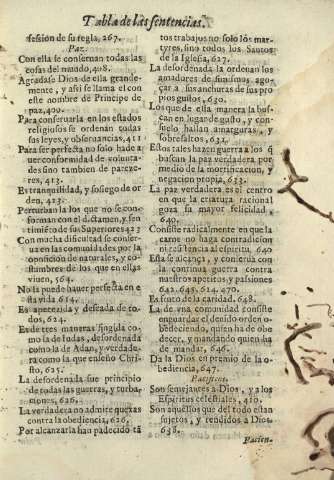 Tabla de las sentencias.
fession de su regla, 267.
Paz.
Con ella se conseruan todas las
cosas del mundo, 408.
Agradase Dios de ella grande-
mente, y assi se llama el con
este nombre de Principe de
paz, 400.
Para conseruarla en los estados
religiosos se ordenan todas
sus leyes, y obseruancias, 411
Para ser perfecta no solo ha de a
uer conformidad de volunta-
des sino tambien de parece-
res, 413.
Es tranquilidad, y sosiego de or
den, 423.
Perturban la los que no se con-
forman con el dictamen, y sen
timiẽto de sus Superiores 423
Con mucha dificultad se conser-
ua en las comunidades por la
oposicion de naturales, y co-
stumbres de los que en ellas
viuen, 564.
No la puede hauer perfecta en e
sta vida 614.
Es apetecida, y deseada de to-
dos, 624.
Es de tres maneras fingida co-
mo la de Iudas, desordenada
como la de Adan, y verdade-
ra como la que enseño Chri-
sto, 625.
La desordenada fue principio
de todas las guerras, y turba-
ciones, 626.
La verdadera no admite quexas
contra la obediencia, 626.
Por alcanzarla han padecido tã
tos trabajos no solo los mar-
tyres, sino todos los Santos
de la Iglesia, 627.
La desordenada la ordenan los
amadores de si mismos, aco-
jar a sus anchuras de sus pro
pios gustos, 630.
Los que de esta manera la bus-
can en lugar de gusto, y con-
suelo hallan amarguras, y
sobresaltos, 631.
Estos tales hazen guerra a los q̃
buscan la paz verdadera por
medio de la mortificacion, y
negacion propia, 633.
La paz verdadera es el centro
en que la criatura racional
goza su mayor felicidad,
640.
Consiste radicalmente en que la
carne no haga contradicion
ni resistencia al espiritu. 640
Esta se alcança, y conserua con
la continua guerra contra
nuestros apetitos, y pasiones
642. 645. 614. 470.
Es fruto de la caridad. 648.
La de vna comunidad consiste
en guardar el deuido orden o-
bedeciendo, quien ha de obe
decer, y mandando quien ha
de mandar, 646.
Da la Dios en premio de la o-
bediencia, 647.
Pacificos.
Son semejantes a Dios, y a los
Espiritus celestiales, 420.
Son aquellos que del todo estan
sujetos, y rendidos a Dios.
638.
Pacien-